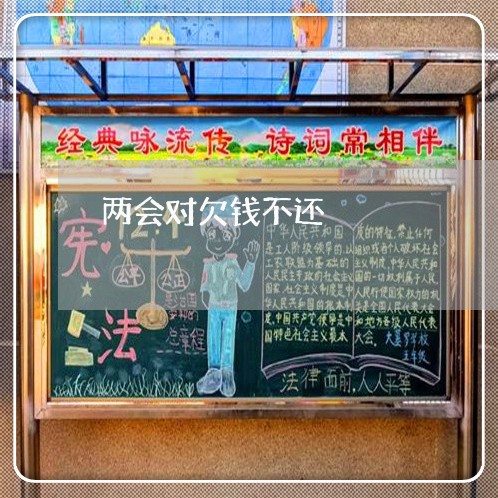 经典咏流传 诗词常相伴
两会对欠钱不还
宪
法
公平
公正
总章程
中华人民共和国
是工人阶级领导的,以
工农联盟为基础的
人民民主专政的社会主义
国家.社会主义制度是中
华人民共和国的根本制
度.中国共产党领导是中
国特色社会主义最本
质的特征.禁止任何
组织或者个人破坏社会
主义制度.中华人民共和
国的一切权利属于人民.
人民行使国家权力的机
关是全国人民代表大会
和地方各级人民代表
大会.
五年级
法律面前,人人平等